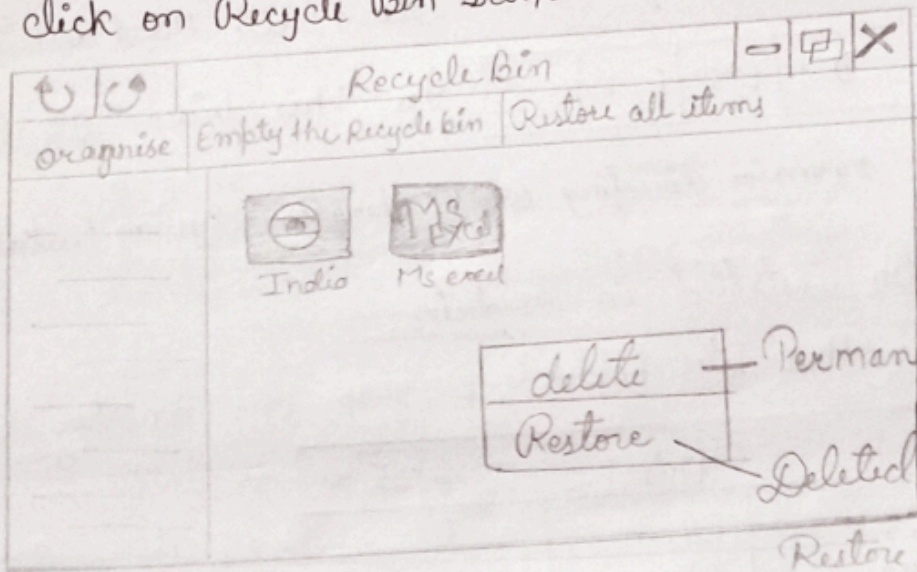 click on Recycle Bin
Recycle Bin
oragnise Empty the Recycle bin Restore all items
MS Excel
India Ms excel
delete Perman
Restore Deleted
Restore